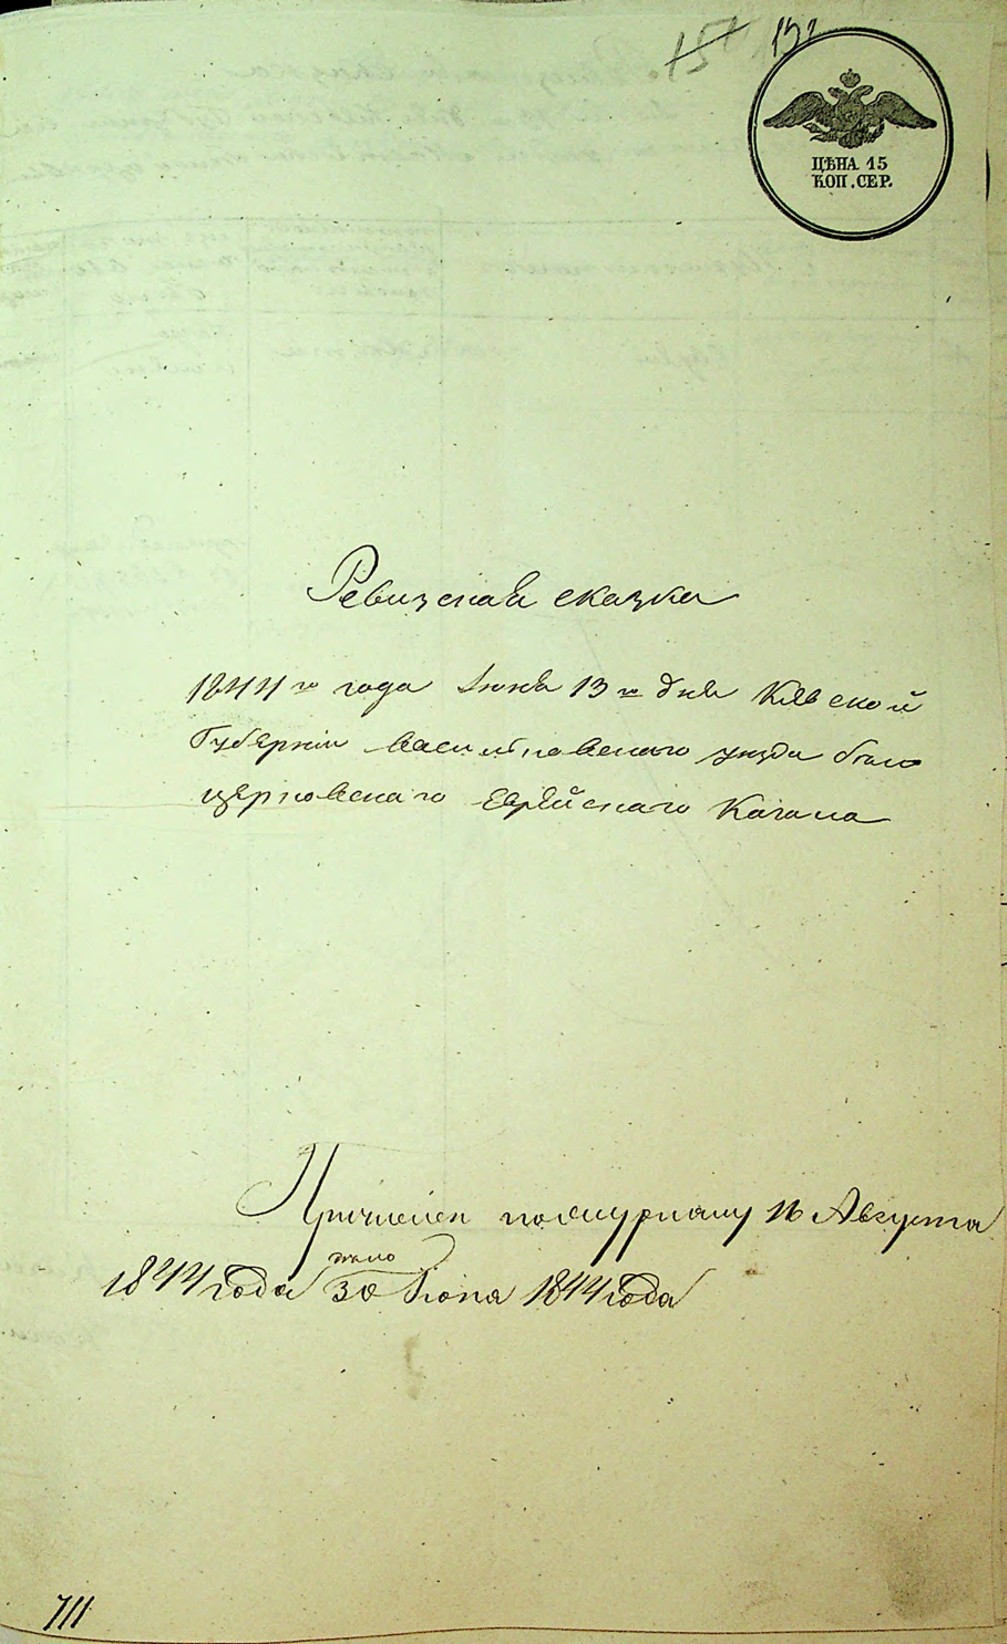 151
ЦѢНА 15
КОП. СЕР.
Ревизская сказка
1844го года Июня 13го дня Кіевской
Губерніи Васильковскаго уезда бѣло
церковскаго Еврейскаго Кагала
16 Августа
1844 года 30 Июня 1844 года
711